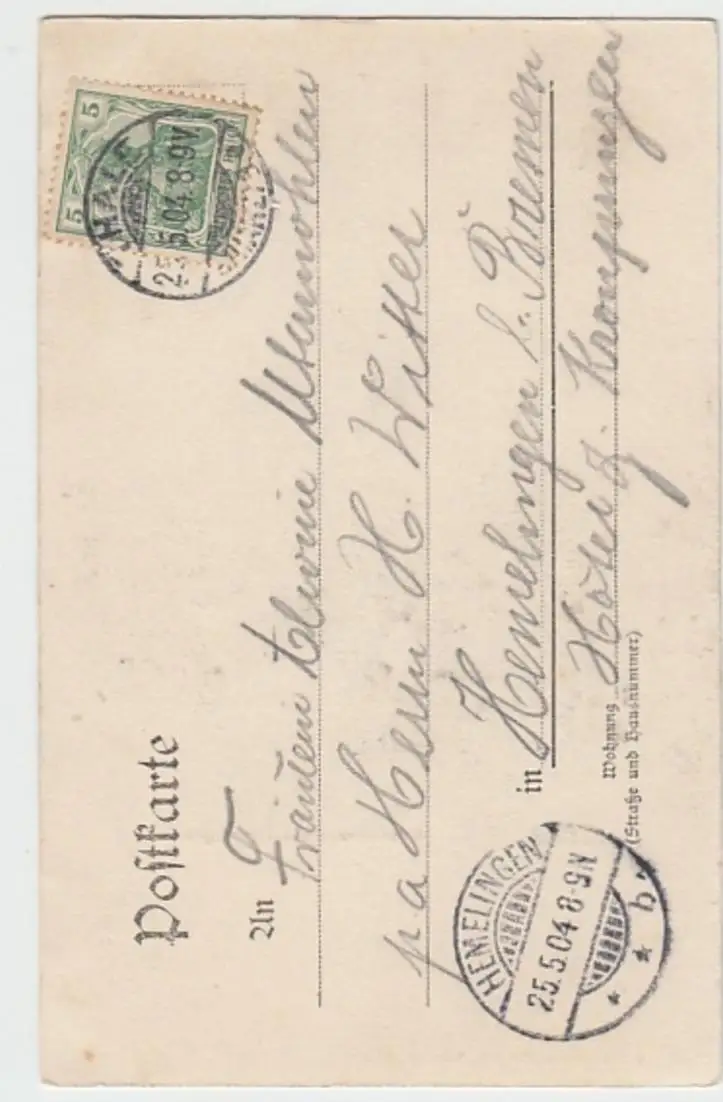 Postkarte
5 5
THALE
25.5.04.8-9V.
An Fräulein Alwine
p a Herrn H. Witter
in Hemelingen b. Bremen
Wohnung Hotel z. Kronprinzen
(Straße und Hausnummer)
HEMELINGEN
25.5.04 8-9N.
* * b.